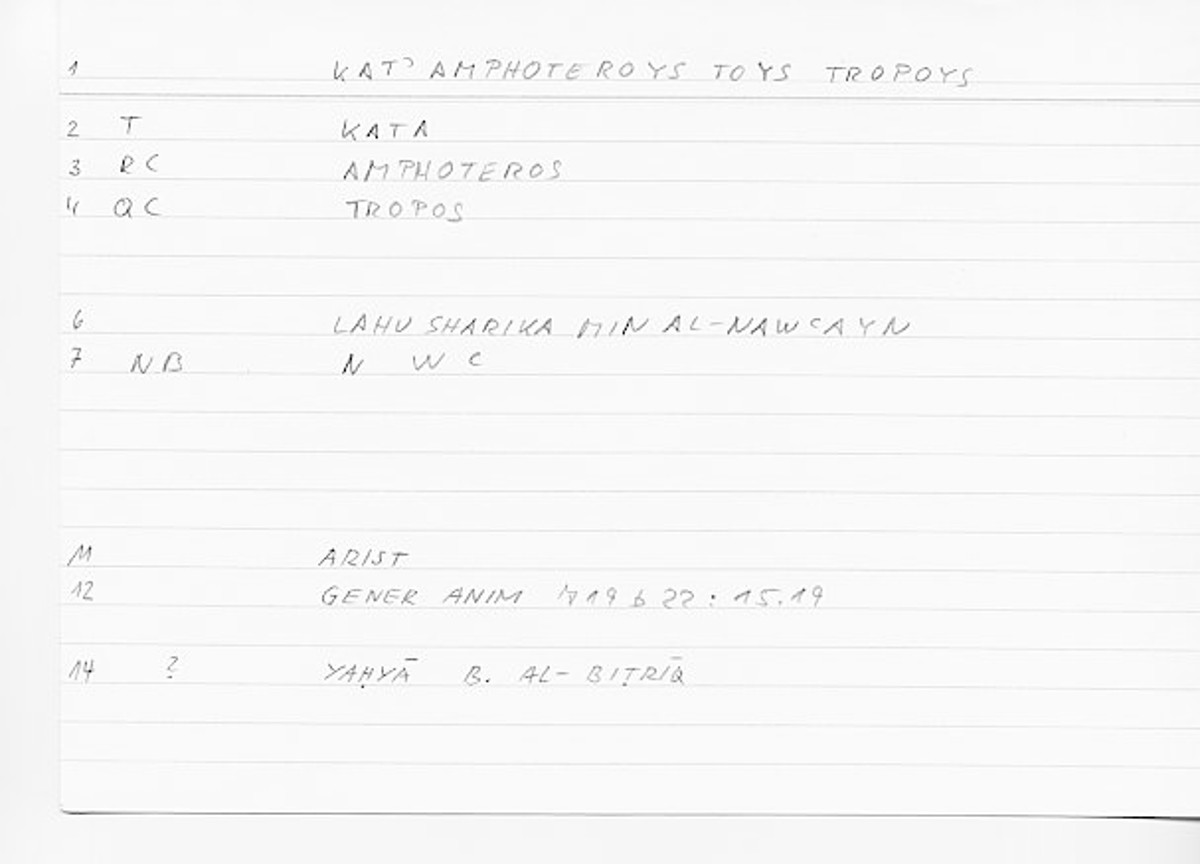 1 KATʾ AMPHOTEROYS TOYS TROPOYS
2 T KATA
3 RC AMPHOTEROS
4 QC TROPOS
6 LAHU SHARIKA MIN AL-NAWʿAYN
7 NB N W ʿ
11 ARIST
12 GENER ANIM 719 b 22 : 15.19
14 ? YAḤYĀ B. AL-BIṬRĪQ